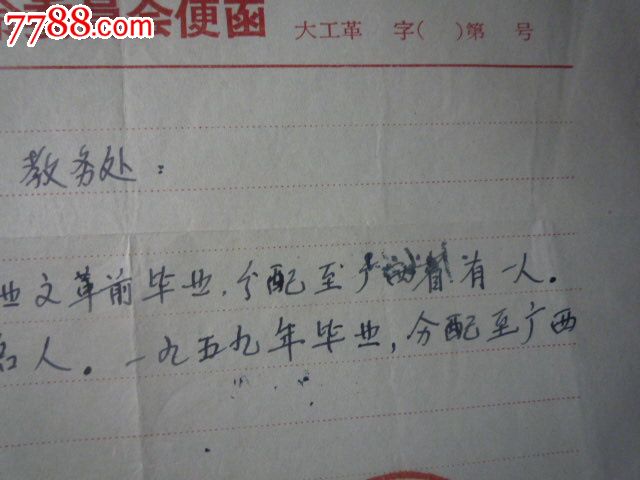 7788.com
委员会便函 大工革 字( )第 号
教务处：
业文革前毕业，分配至广西省有一人。
名人。一九五九年毕业，分配至广西